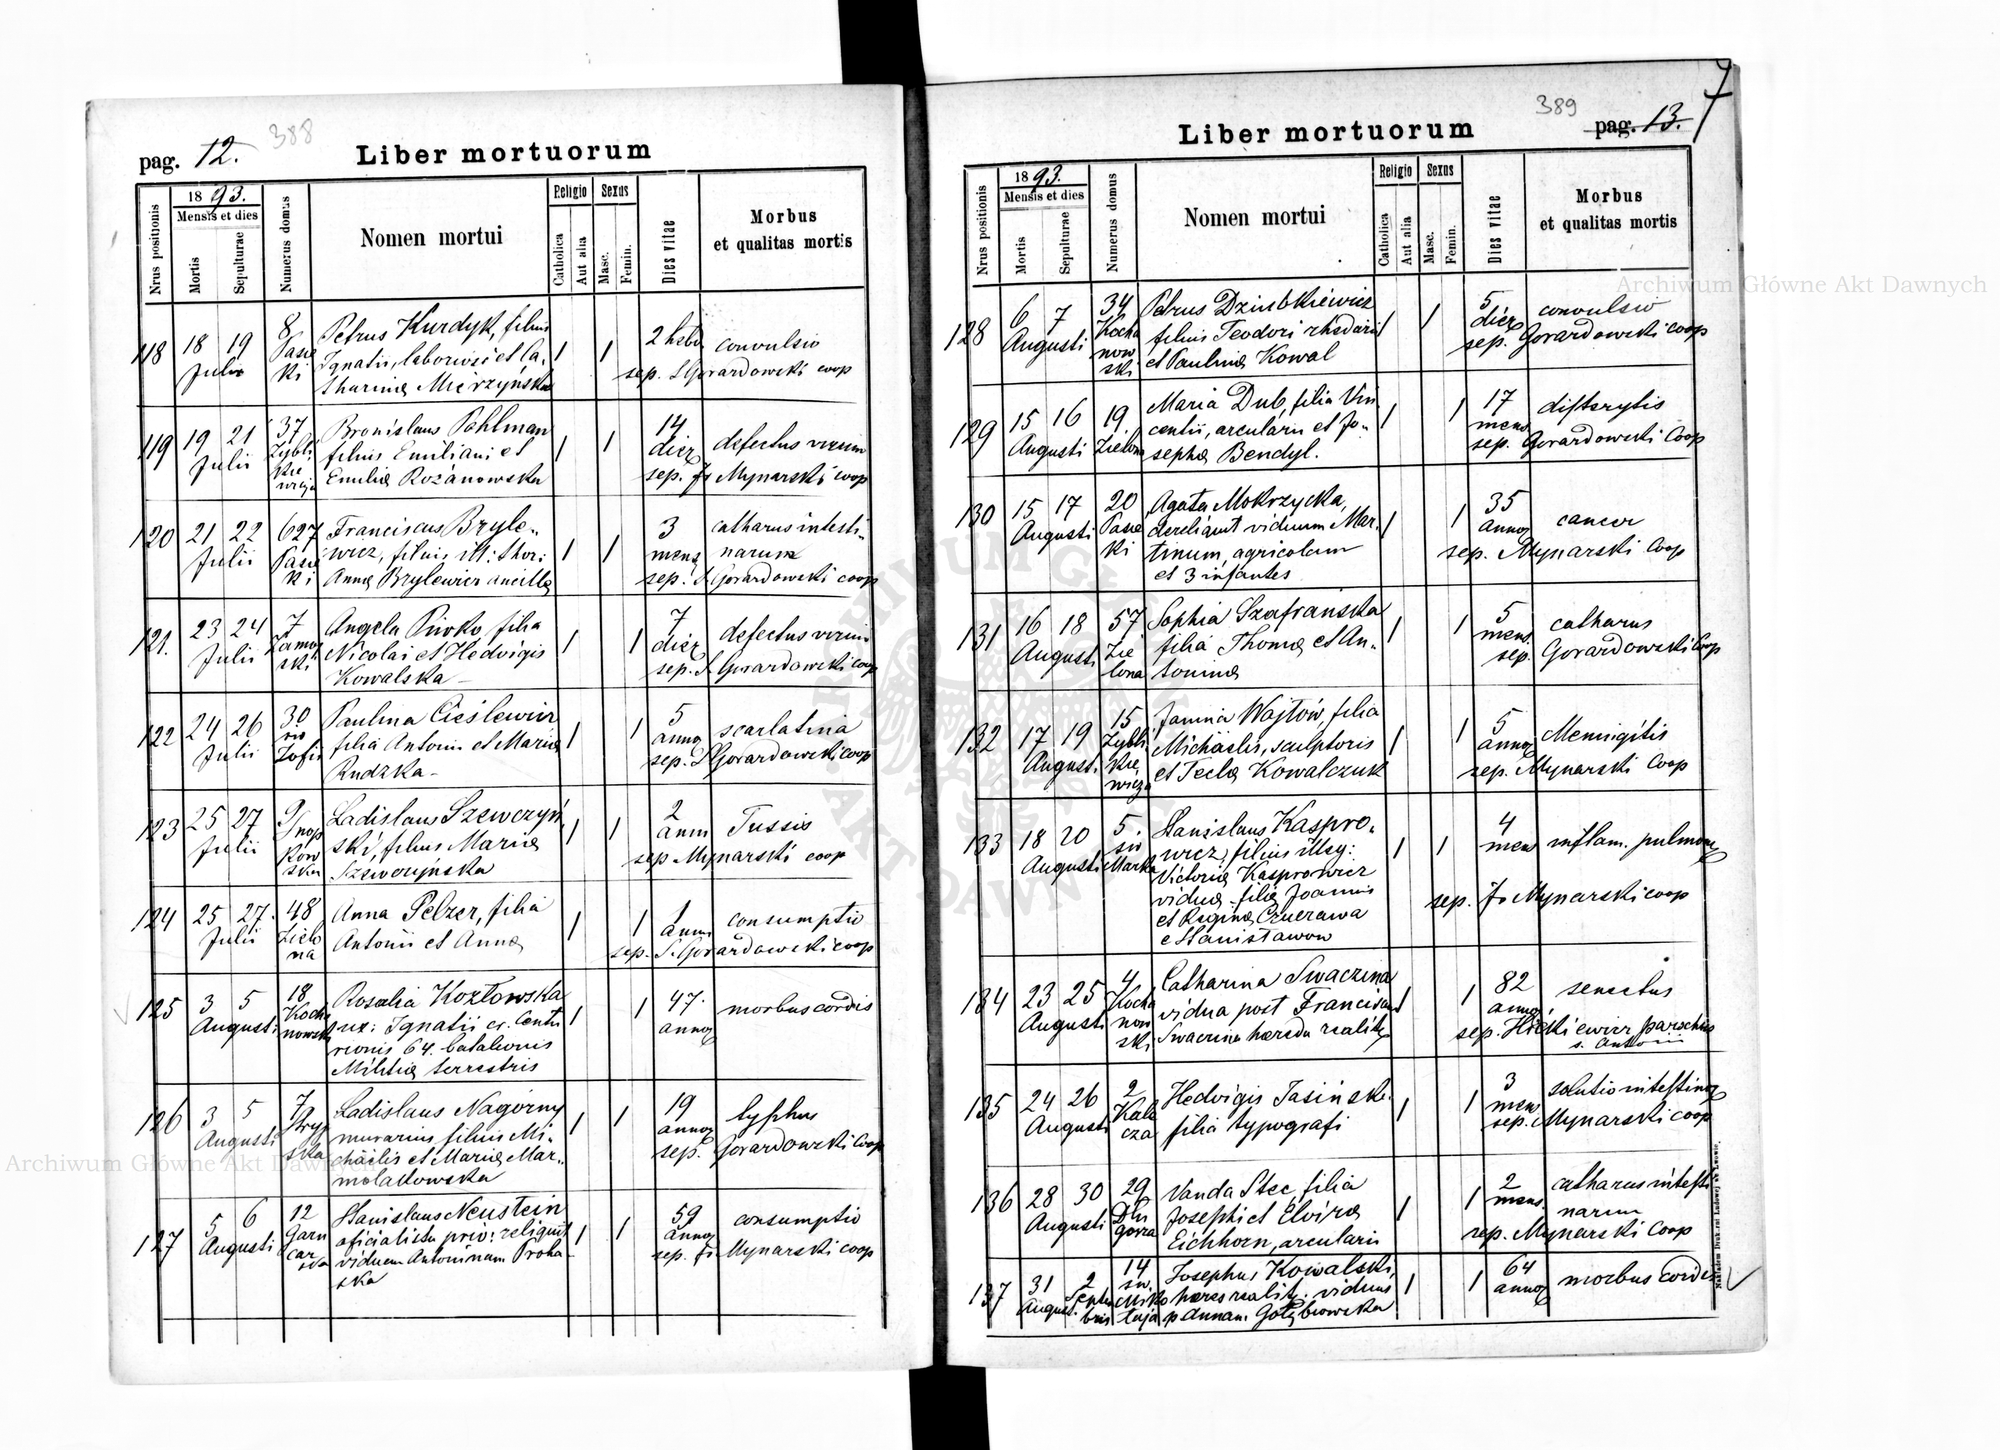 388
pag. 12.
Liber mortuorum
Nrus positionis
1893.
Mensis et dies
Mortis
Sepulturae
Numerus domus
Nomen mortui
Religio
Catholica
Aut alia
Sexus
Masc.
Femin.
Dies vitae
Morbus
et qualitas mortis
118 18 19 Julii 8 Pasie ki
Petrus Kurdyk, filius
Ignatii, laborissi et Ca-
tharinæ Mierzyńska
1 1 2 hebd convulsio
sep. S Gorardowski coop
119 19 21 Julii 37 Zybli kie wicza
Bronislaus Pohlman
filius Emiliani et
Emiliæ Rożanowska
1 1 14 dier defectus virium
sep. Js Mynarski coop
120 21 22 Julii 627 Pasie ki
Franciscus Bryle-
wicz, filius ill: thor:
Annæ Brylewicz ancillæ
1 1 3 mens catharus intesti-
narum
sep. S Gorardowski coop
121. 23 24 Julii 7 Zamoj ski
Angela Piwko filia
Nicolai et Hedvigis
Kowalska -
1 1 7 dier defectus virium
sep. S. Gorardowski coop
122 24 26 Julii 30 św Zofii
Paulina Cieślewicz
filia Antonii et Mariæ
Rudzka -
1 1 5 annor scarlatina
sep. S Gorardowski coop
123 25 27 Julii 9 Snop kow ska
Ladislaus Szewczyń
ski, filius Mariæ
Szewczyńska
1 1 2 anni Tussis
sep Mynarski coop
124 25 27. Julii 48 Zielo na
Anna Pelzer, filia
Antonii et Annæ
1 1 1 anni consumptio
sep. S. Gorardowski coop
125 3 5 Augusti 18 Kocha nowski
Rosalia Kozłowska
ux: Ignatii cr. Centu
rionis 64. batalionis
Militiæ terrestris
1 1 47. annor morbus cordis
126 3 5 Augusti 7 Stryj ska
Ladislaus Nagórny
murarius filius Mi-
chaelis et Mariæ Mar-
moladowska
1 1 19 annor typhus
sep. Gorardowski Coop
127 5 6 Augusti 12 Garn car ska
Stanislaus Neustein
oficialista priv: reliquit
viduem Antoninam Proha
ska
1 1 59 annor consumptio
sep. Js Mynarski coop
389
pag. 13.
Liber mortuorum
Nrus positionis
1893.
Mensis et dies
Mortis
Sepulturae
Numerus domus
Nomen mortui
Religio
Catholica
Aut alia
Sexus
Masc.
Femin.
Dies vitae
Morbus
et qualitas mortis
128 6 7 Augusti 34 Kocha now ski
Petrus Dziubkiewicz
filius Teodori rhedarii
et Paulinæ Kowal
1 1 5 dier convulsio
sep. Gorardowski coop
129 15 16 Augusti 19. Zielona
Maria Dub, filia Vin
centii, arcularii et Jo-
sephæ Bendyl.
1 1 17 mens difterytis
sep. Gorardowski Coop
130 15 17 Augusti 20 Pasie ki
Agata Mokrzycka,
dereliquit viduum Mar-
tinum, agricolam
et 3 infantes
1 1 35 annor cancer
sep. Mynarski Coop
131 16 18 Augusti 57 Zie lona
Sophia Szafrańska
filia Thomæ et An-
toninæ
1 1 5 mens. catharus
sep. Gorardowski Coop
132 17 19 Augusti 15 Zybli kie wicza
Janina Wojtów, filia
Michaelis, sculptoris
et Teclæ Kowalczuk
1 1 5 annor Meningitis
sep. Mynarski Coop
133 18 20 Augusti 5. św Marka
Stanislaus Kaspro-
wicz, filius illeg:
Victoriæ Kasprowicz
viduæ - filiæ Joannis
et Reginæ Czuczawa
e Stanisławow
1 1 4 mens inflam. pulmon
sep. Js Mynarski coop
134 23 25 Augusti 4 Kocha now ski
Catharina Swaczina
vidua post Franciscum
Swaczina hæreda realitis
1 1 82 annor senectus
sep. parochus
s. Antonii
135 24 26 Augusti 2 Kale cza
Hedvigis Jasińska
filia typografi
1 1 3 mens solutio intestinor
sep. Mynarski coop
136 28 30 Augusti 29 Dłu gosza
Vanda Stec, filia
Josephi et Elviræ
Eichhorn, arcularii
1 1 2 mens. catharus intesti
narum
sep. Mynarski Coop
137 31 August. 2 Septem bris 14 św. Miko łaja
Josephus Kowalski,
hæres realit: viduus
p Annam Gołębiowska
1 1 64 annor morbus cordis
Nakładem Drukarni Ludowej we Lwowie.
Archiwum Główne Akt Dawnych
Archiwum Główne Akt Dawnych
ARCHIWUM GŁÓWNE AKT DAWNYCH